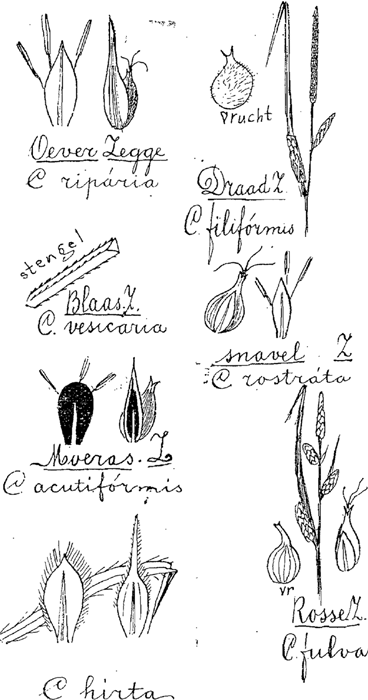 Oever Zegge
C ripária
stengel
Blaas Z.
C. vesicaria
Moeras. Z
C acutifórmis
C hirta
Vrucht
Draad Z.
C. filifórmis
snavel Z
C rostráta
vr
Rosse Z.
C. fulva